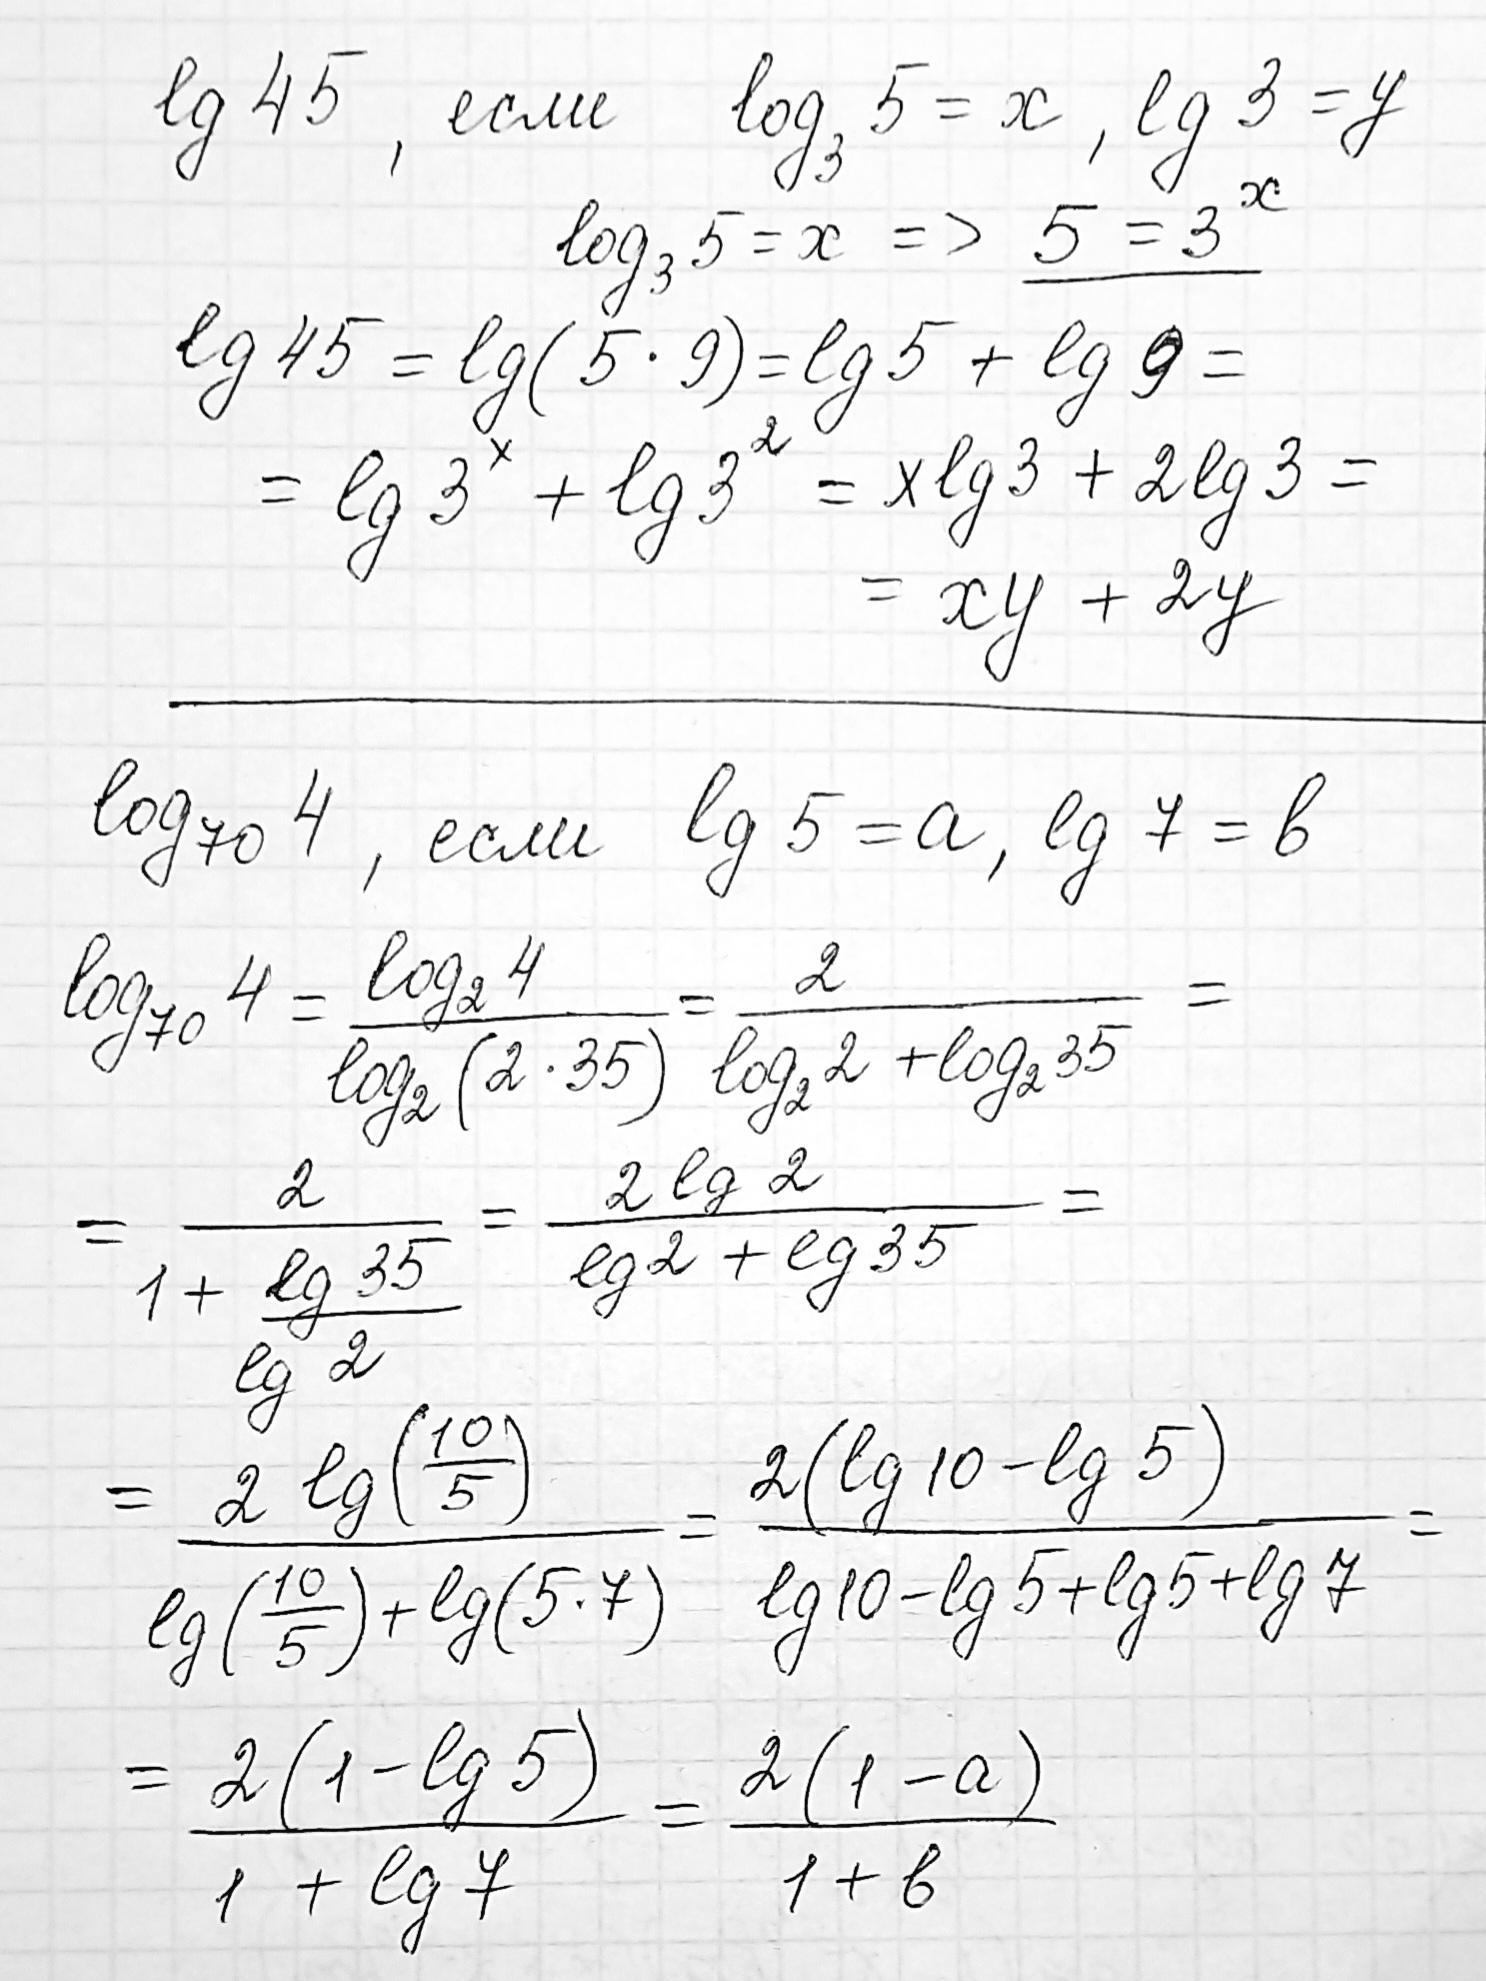 lg 45, если log₃ 5 = x, lg 3 = y
log₃ 5 = x => 5 = 3ˣ
lg 45 = lg(5 · 9) = lg 5 + lg 9 =
= lg 3ˣ + lg 3² = x lg 3 + 2 lg 3 =
= xy + 2y
log₇₀ 4, если lg 5 = a, lg 7 = b
log₇₀ 4 = \frac{log₂ 4}{log₂(2 · 35)} = \frac{2}{log₂ 2 + log₂ 35} =
= \frac{2}{1 + \frac{lg 35}{lg 2}} = \frac{2 lg 2}{lg 2 + lg 35} =
= \frac{2 lg(\frac{10}{5})}{lg(\frac{10}{5}) + lg(5 · 7)} = \frac{2(lg 10 - lg 5)}{lg 10 - lg 5 + lg 5 + lg 7} =
= \frac{2(1 - lg 5)}{1 + lg 7} = \frac{2(1 - a)}{1 + b}